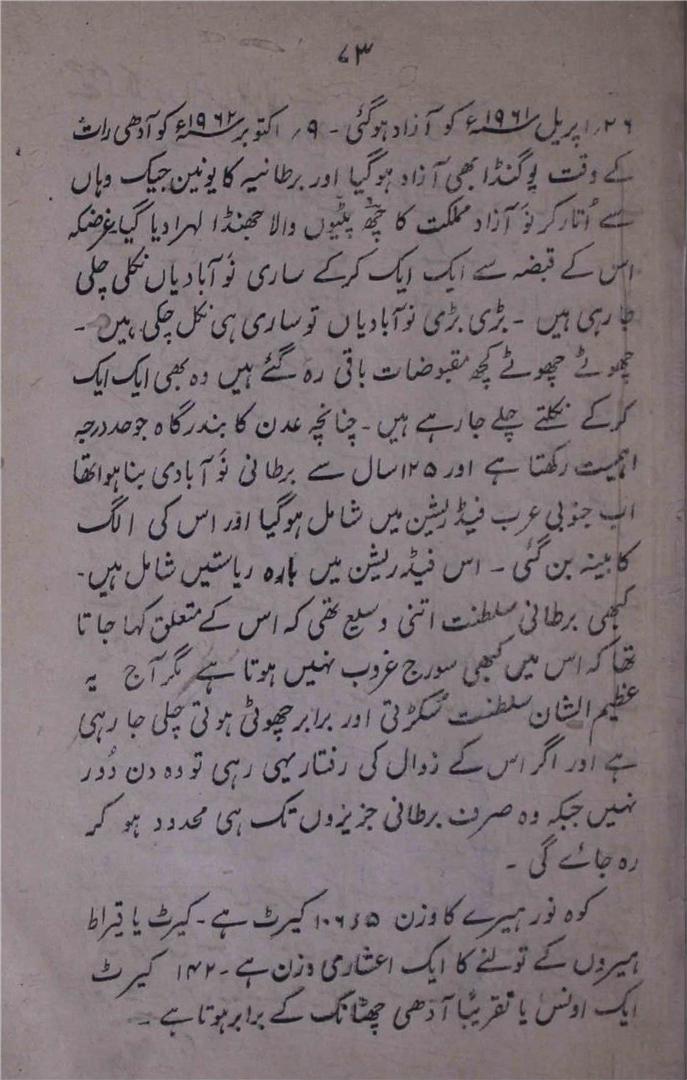 ۷۳
۲۶؍ اپریل ۱۹۶۱ء کو آزاد ہوگئی ۔ ۹؍ اکتوبر ۱۹۶۲ء کو آدھی رات
کے وقت یوگنڈا بھی آزاد ہوگیا اور برطانیہ کا یونین جیک وہاں
سے اُتار کر نَو آزاد مملکت کا چھ پٹیوں والا جھنڈا لہرا دیا گیا غرضکہ
اس کے قبضہ سے ایک ایک کرکے ساری نَو آبادیاں نکلی چلی
جا رہی ہیں ۔ بڑی بڑی نوآبادیاں تو ساری ہی نکل چکی ہیں ۔
چھوٹے چھوٹے کچھ مقبوضات باقی رہ گئے ہیں وہ بھی ایک ایک
کرکے نکلتے چلے جا رہے ہیں ۔ چنانچہ عدن کا بندرگاہ جو حد درجہ
اہمیت رکھتا ہے اور ۱۲۵ سال سے برطانی نَو آبادی بنا ہوا تھا
اب جنوبی عرب فیڈریشن میں شامل ہوگیا اور اس کی الگ
کابینہ بن گئی ۔ اس فیڈریشن میں بارہ ریاستیں شامل ہیں ۔
کبھی برطانی سلطنت اتنی وسیع تھی کہ اس کے متعلق کہا جاتا
تھا کہ اس میں کبھی سورج غروب نہیں ہوتا ہے مگر آج یہ
عظیم الشان سلطنت سُکڑتی اور برابر چھوٹی ہوتی چلی جا رہی
ہے اور اگر اس کے زوال کی رفتار یہی رہی تو وہ دن دُور
نہیں جبکہ وہ صرف برطانی جزیروں تک ہی محدود ہو کر
رہ جائے گی ۔
کوہ نور ہیرے کا وزن ۱۰۶ء۵ کیرٹ ہے ۔ کیرٹ یا قیراط
ہیروں کے تولنے کا ایک اعشاری وزن ہے ۔ ۱۴۲ کیرٹ
ایک اونس یا تقریباً آدھی چھٹانک کے برابر ہوتا ہے ۔